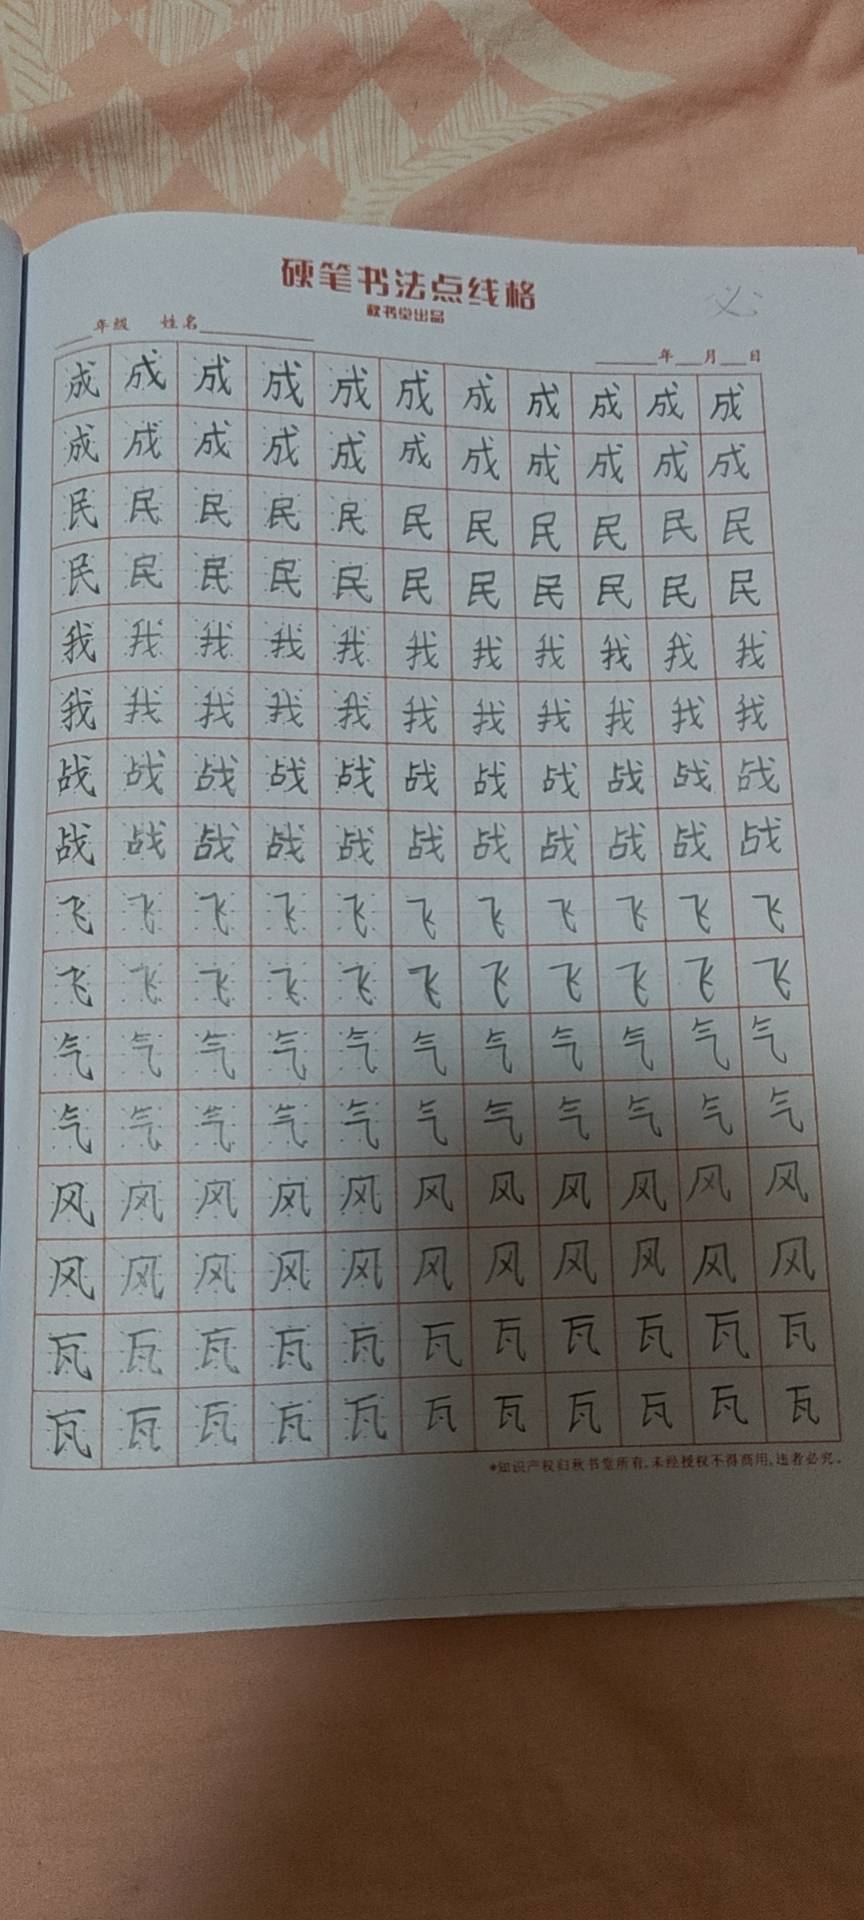 硬笔书法点线格
秋书堂出品
必
年级 姓名
年 月 日
成 成 成 成 成 成 成 成 成 成 成
成 成 成 成 成 成 成 成 成 成 成
民 民 民 民 民 民 民 民 民 民 民
民 民 民 民 民 民 民 民 民 民 民
我 我 我 我 我 我 我 我 我 我 我
我 我 我 我 我 我 我 我 我 我 我
战 战 战 战 战 战 战 战 战 战 战
战 战 战 战 战 战 战 战 战 战 战
飞 飞 飞 飞 飞 飞 飞 飞 飞 飞 飞
飞 飞 飞 飞 飞 飞 飞 飞 飞 飞 飞
气 气 气 气 气 气 气 气 气 气 气
气 气 气 气 气 气 气 气 气 气 气
风 风 风 风 风 风 风 风 风 风 风
风 风 风 风 风 风 风 风 风 风 风
瓦 瓦 瓦 瓦 瓦 瓦 瓦 瓦 瓦 瓦 瓦
瓦 瓦 瓦 瓦 瓦 瓦 瓦 瓦 瓦 瓦 瓦
*知识产权归秋书堂所有,未经授权不得商用,违者必究。